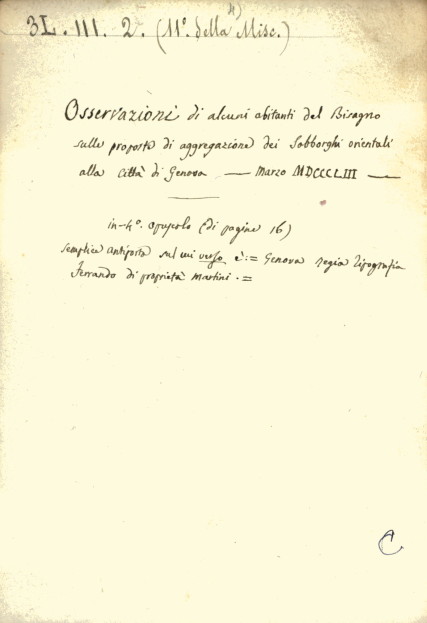 3L. III. 2. (11º. della Misc.)
4)
Osservazioni di alcuni abitanti del Bisagno
sulle proposte di aggregazione dei Sobborghi orientali
alla Città di Genova — Marzo MDCCCLIII —
in-4º. opuscolo (di pagine 16)
semplice antiporta sul cui verso è := Genova regia Tipografia
Ferrando di proprietà Martini.=
C